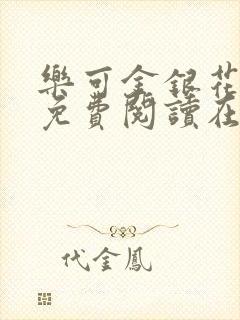 樂可金銀花
免費閱讀在
代金鳳